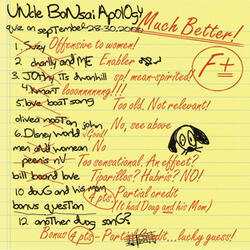 UNcle BoNsai Apology
Much Better!
quiz on september 28-30, 200
F+
1. Suzy Offensive to women!
2 charly and ME Enabler
3. JOHNY its downhill sp! mean-spirited!
4. Kwaat looonnnnnng!!!
5. love boat song Too old. Not relevant!
olivea nooton john No, see above
6. Disney world (Good!
men and woman No
peenis nV Too sensational. An effect?
bill board love Tiparillos? Hubris? NO!
10 doug and his mom Partial credit
(4 pts) (It had Doug and his Mom)
bonus question
12 another doug song?
Bonus (4 pts) - Partial Credit...lucky guess!